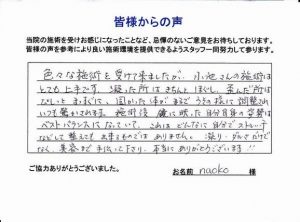 皆様からの声
当院の施術を受けお感じになったことなど、忌憚のないご意見をお待ちしております。
皆様の声を参考により良い施術環境を提供できるようスタッフ一同努力して参ります。
色々な施術を受けて来ましたが、小池さんの施術は
とても上手です。凝った所はきちんとほぐし、歪んだ所は
ぴしっとまっすぐに、固かった体がまるでうその様に調整され
いつも驚かされます。施術後、鏡に映った自分自身の姿勢は
ベストバランスになっていて、これはどんなに自分でストレッチ
などして整えても出来るものではありません。凝り、ゆがみだけで
なく、美容まで手伝って下さり、本当にありがとうございます!!
ご協力ありがとうございました。
お名前 naoko 様